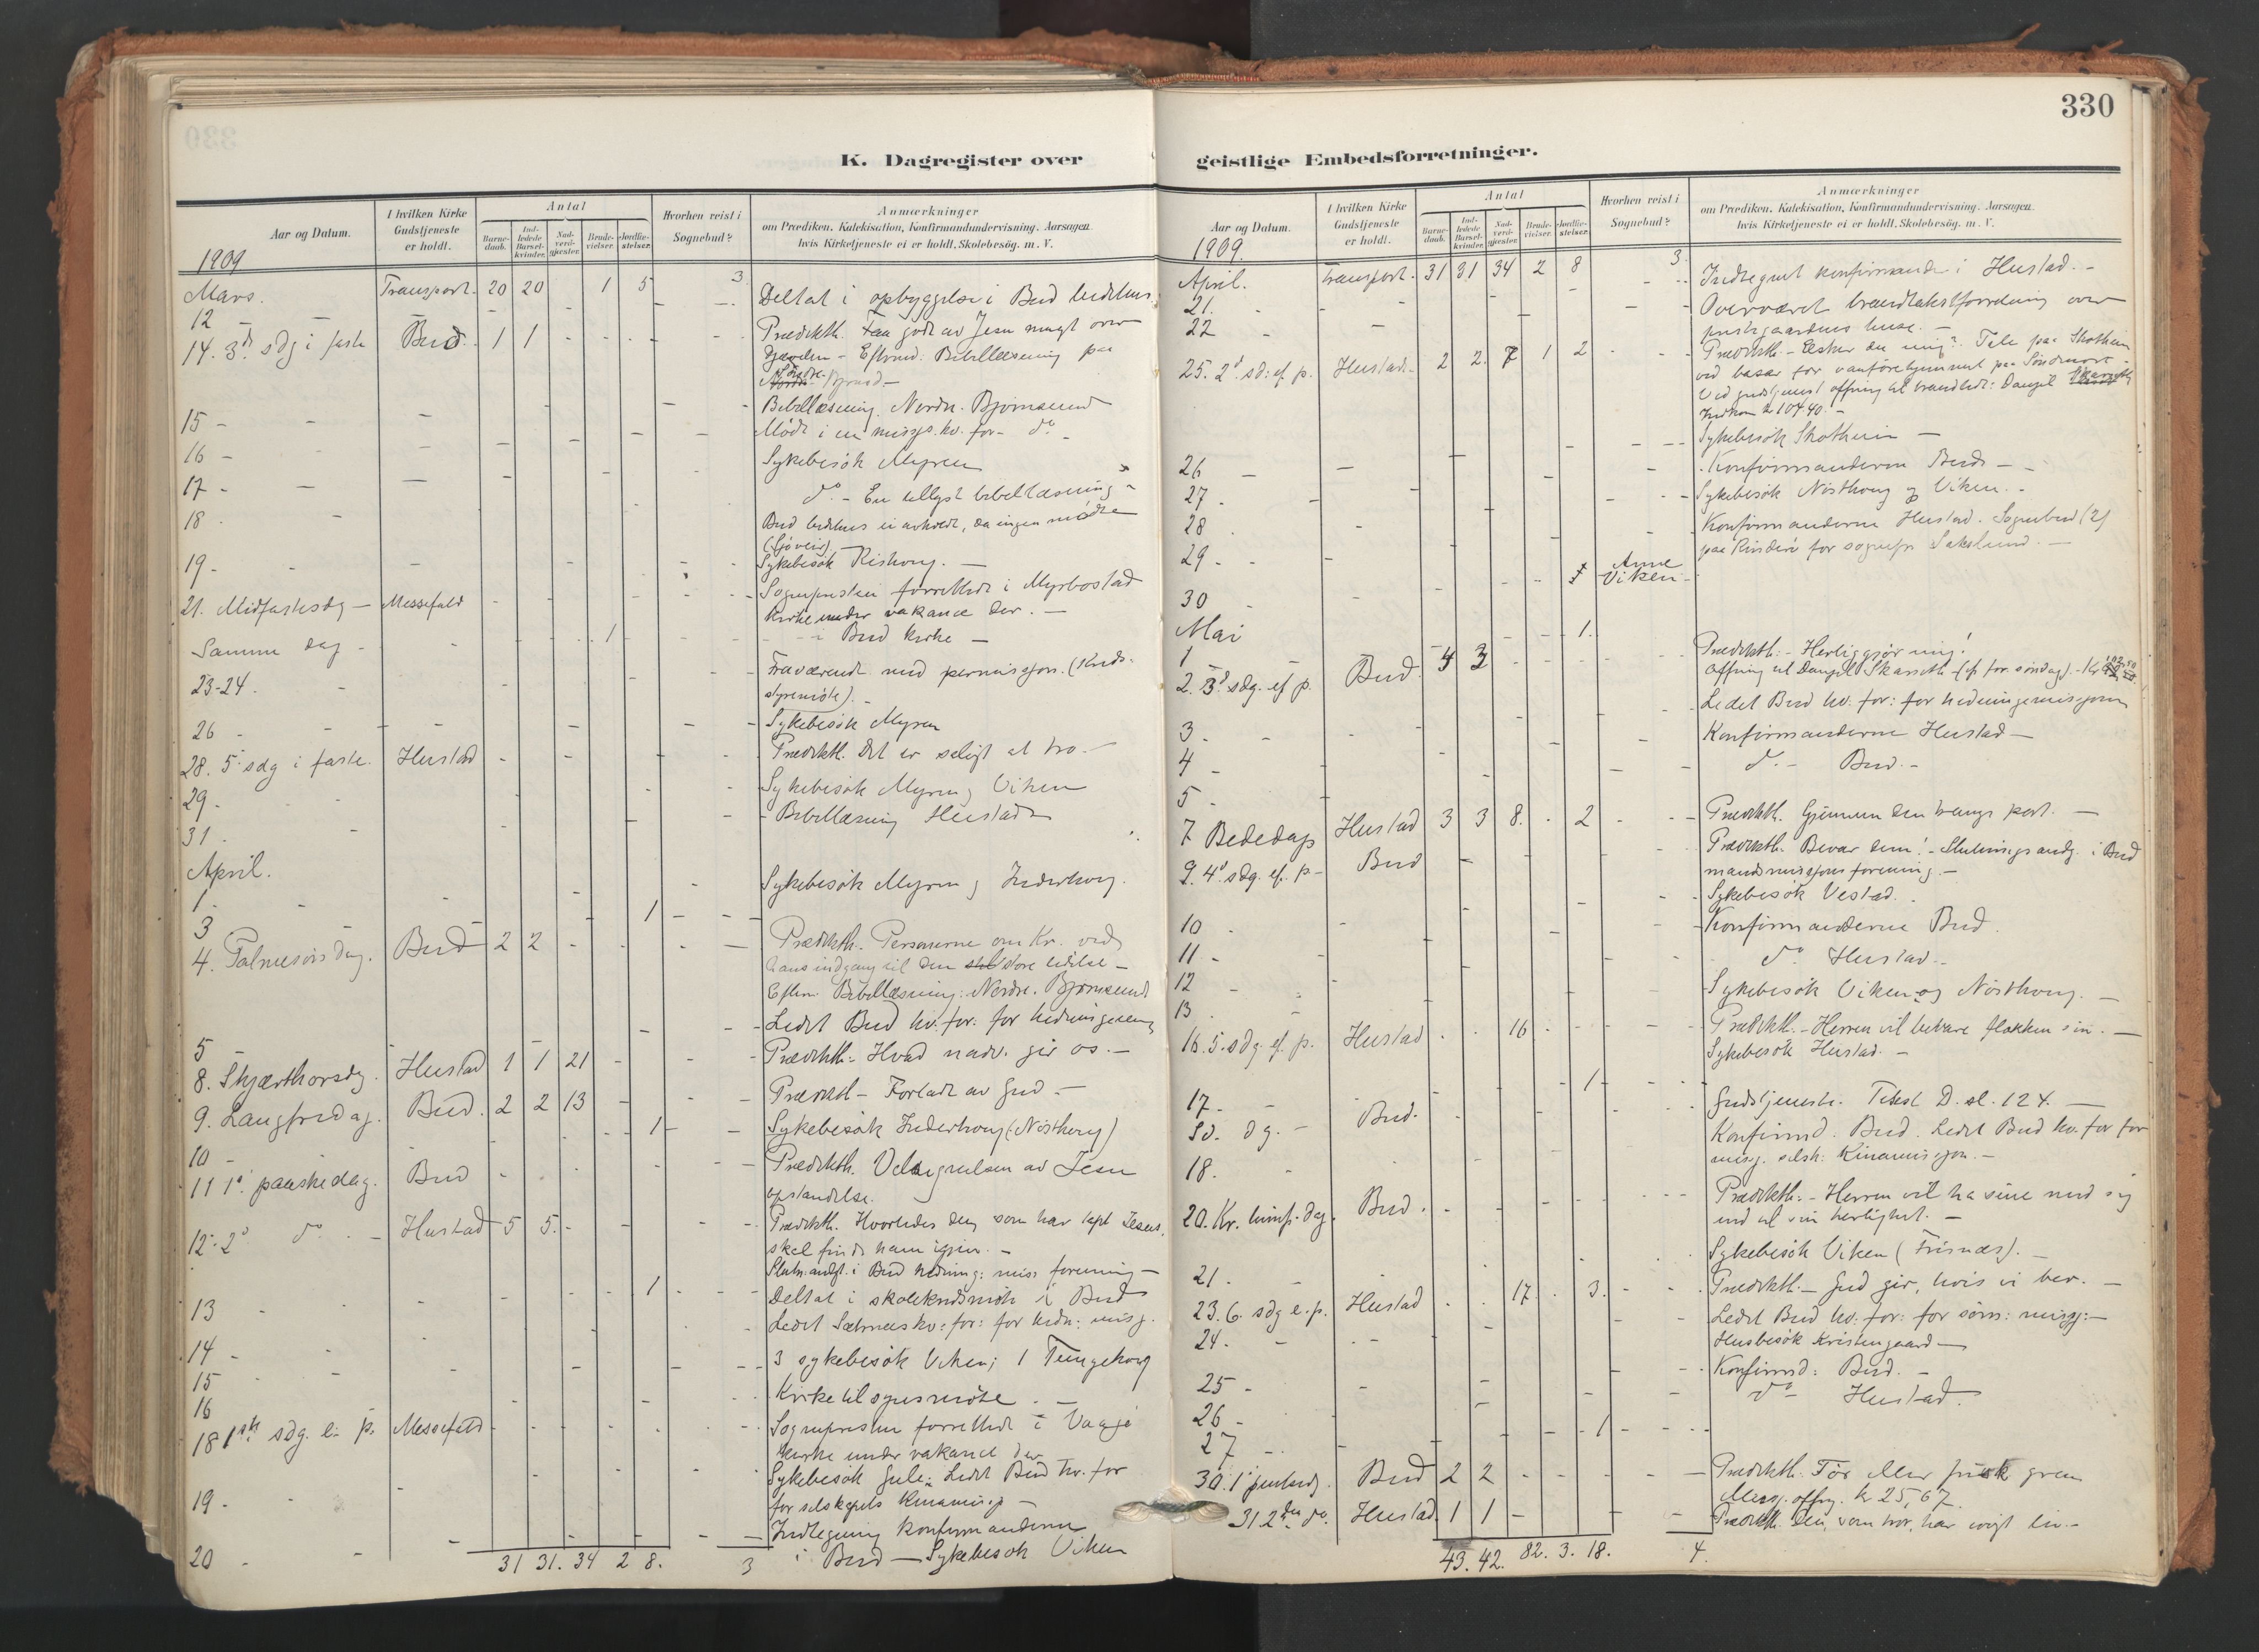 330
K. Dagregister over
Aar og Datum.
I hvilken Kirke Gudstjeneste er holdt.
Antal
Barnedaab.
Indledede Barselkvinder.
Nadverdgjæster.
Brudevielser.
Jordfæstelser.
Hvorhen reist i Sognebud?
Anmærkninger
om Prædiken, Katekisation, Konfirmandundervisning. Aarsagen
hvis Kirketjeneste ei er holdt. Skolebesøg. m. V.
1909
Mars. Transport. 20 20 1 5 3
12 - Deltat i opbyggelse i Bud bedehus.
14. 3d. sdg i faste Bud. 1 1 - Prædikth. Faa godt av Jesu magt over
Djævelen - Efterm: Bibellæsning paa
Søndre
Bjørnsund -
15 - Bibellæsning. Nordre. Bjørnsund
16 - Møde i en missjs. kv. for - do -
17 - Sykebesøk Myren
18 - do - En utlyst bibellæsning -
Bud bedehus ei avholdt, da ingen mødte
(Sjøveir).
19 - Sykebesøk Rishoug. -
21. Midfastesdg - Messefald - Sognepresten forrettede i Myrbostad
kirke under vakance der. -
Samme dag - 1 - i Bud kirke -
23-24. Fraværende med permissjon. (Kreds-
styremøte). -
26 - Sykebesøk Myren
28. 5. sdg i faste. Hustad - Prædikth. Det er seligt at tro -
29 - Sykebesøk Myren, Viken
31. - Bibellæsning Hustad
April.
1. - Sykebesøk Myren, Inderhoug.
3 - 1
4. Palmesøndag. Bud 2 2 - Prædikth. Personerne om Kr. ved
hans indgang til den store lidelse -
Efterm. Bibellæsning: Nordre. Bjørnsund
5 - Ledet Bud kv. for. for hedningemis
8. Skjærthorsdg. Hustad 1 1 21 - Prædikth. - Hvad nadv. gir os. -
9. Langfredag. Bud. 2 2 13 - Prædikth - Forladt av Gud -
10 - 1 - Sykebesøk Inderhoug (Nösthoug)
11 1ste paaskedag. Bud - Prædikth. Velsignelsen av Jesu
opstandelse.
12. 2d do - Hustad 5 5. - Prædikth. Hvorledes den, som har tapt Jesus,
skal finde ham igjen. -
Slutn. andgt. i Bud hedning: miss forening -
13 - 1 - Deltat i skolekredsmøte i Bud
14 - Ledet Sætneskv: for: for hedn: missj.
15 - 3 sykebesøk Viken; 1 Tungehoug
16 - Kirketilsynsmøte. -
18 1ste sdg. e: p. Messefald - Sognepresten forrettede i Vaagø
kirke under vakance der
19 - Sykebesøk Gule: Ledet Bud kv. for
for selskapets Kinamissj -
20 - Indtegning konfirmanderne
i Bud - Sykebesøk Viken
31 31. 34 2 8. 3
geistlige Embedsforretninger.
Aar og Datum.
I hvilken Kirke Gudstjeneste er holdt.
Antal
Barnedaab.
Indledede Barselkvinder.
Nadverdgjæster.
Brudevielser.
Jordfæstelser.
Hvorhen reist i Sognebud?
Anmærkninger
om Prædiken. Katekisation, Konfirmandundervisning. Aarsagen
hvis Kirketjeneste ei er holdt. Skolebesøg. m. V.
1909.
April. Transport. 31 31 34 2 8 3.
21. - Indtegnet konfirmander i Hustad. -
22 - Overværet brandtakstforretning over
prestegaardens huse. -
25. 2d. sd: ef. p. Hustad. 2 2. 7 1 2 - Prædikth. - Elsker du mig? Tale paa Skotheim
ved basar for vanførehjemmet paa Søndmør. -
Ved gudstjenest offring til brandlidt: Daniel Skarseth
Indkom kr 104.40. -
26 - Sykebesøk Skotheim -
27. - Konfirmanderne Bud - -
28 - Sykebesøk Nösthoug og Viken. -
29 - Konfirmanderne Hustad. Sognebud (2)
paa Rindarö for sognepr Sakslund. -
30 - 1 Anne Viken -
Mai
1 - 1.
2. 3d. sdg. ef p. Bud. 4 3 Prædikth: - Herliggjør mig!
Offring til Daniel Skarseth (se for søndag). - Kr 102.50
3 - Ledet Bud kv: for: for hedningemissjonen
4 - Konfirmanderne Hustad -
5 - do - Bud. -
7 Bededag Hustad 3 3 8. 2 - Prædikth. Gjennem den trange port. -
9. 4d. sdg. ef. p - Bud - Prædikth. Bevar dem! - Slutningsandg. i Bud
mandsmissjonsforening. -
10 - Sykebesøk Vestad.
11 - Konfirmanderne Bud.
12 - do Hustad -
13 - Sykebesøk Viken og Nösthoug. -
16. 5. sdg. ef. p. Hustad 16 - Prædikth. - Herren vil bevare flokken sin. -
Sykebesøk Hustad. -
17. - 1
Sd. dg. - Bud. Gudstjeneste. Tekst D. sl. 124. -
18. - Konfirmd. Bud. Ledet Bud kv. for for
missj. selsk: Kinamissjon. -
20. Kr. himf. dag. Bud. - Prædikth: - Herren vil ha sine med sig
ind til sin herlighet. -
21. - Sykebesøk Viken (Frisnæs). -
23. 6. sdg e. p. Hustad 17. 3. - Prædikth. - Gud gir, hvis vi ber. -
24. - Ledet Bud kv: for: for søm: missj: -
Husbesøk Kristengaard -
25 - Konfirmd: Bud. -
26 - do - Hustad.
27 - 1
30. 1 pintsedg. Bud 2 2 - Prædikth. Tør eller frisk gren
Missj. offrg. kr 25,67.
31 2den do. Hustad. 1 1 - Prædikth. Den, som tror, har evigt liv. -
43. 42. 82. 3. 18. 4.